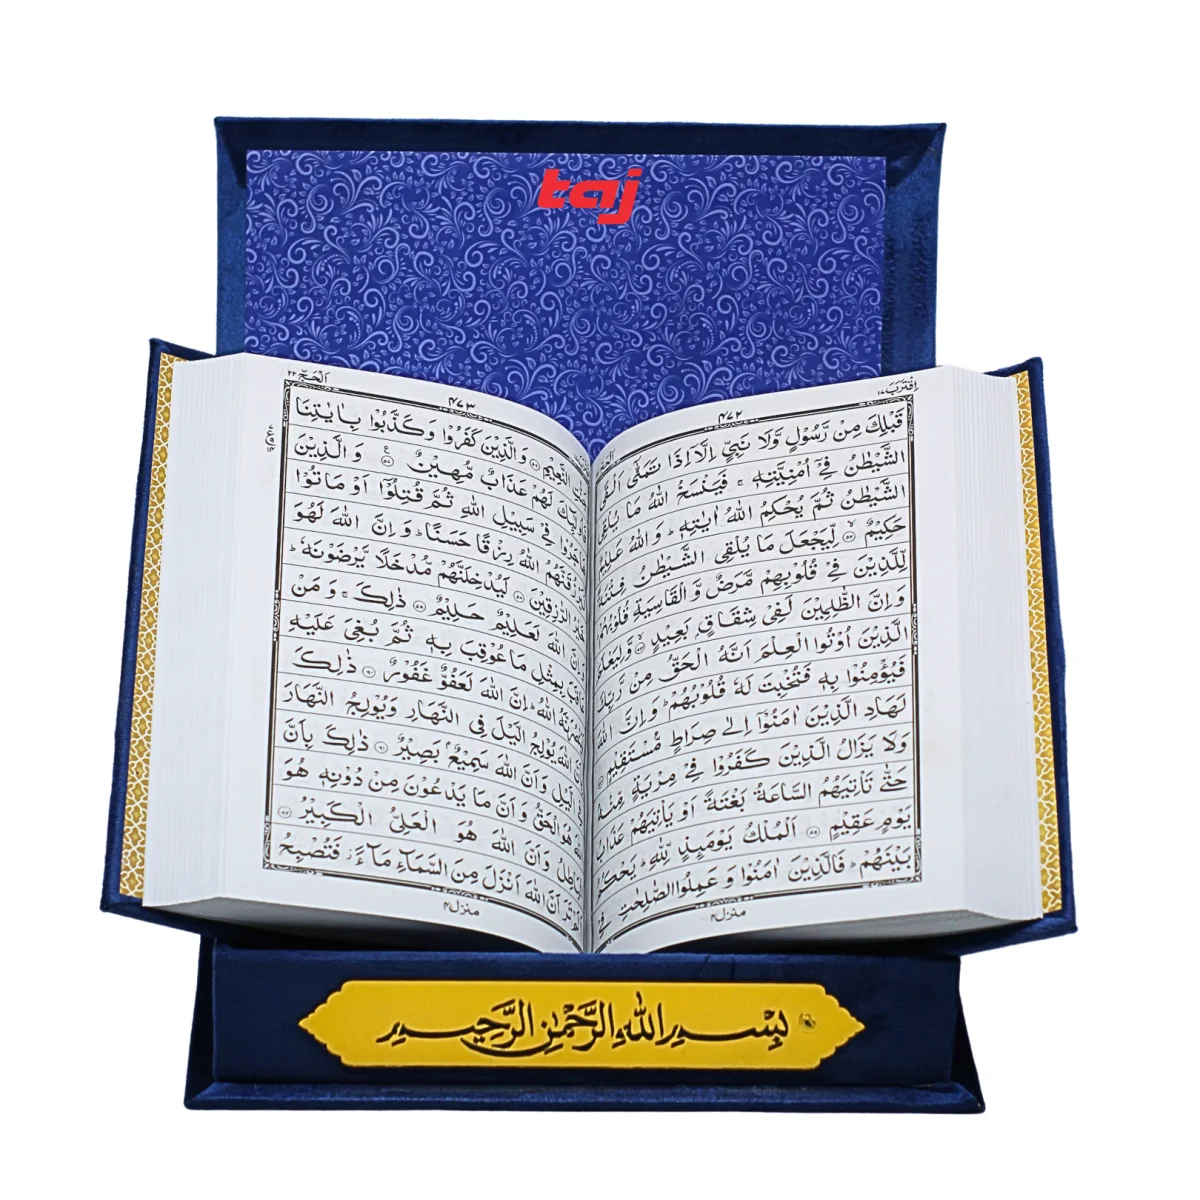 taj
اِقْتَرَبَ ۱۷
۴۷۲
قَبْلِكَ مِنْ رَّسُوْلٍ وَّلَا نَبِيٍّ اِلَّاۤ اِذَا تَمَنّٰۤى اَلْقَى
الشَّيْطٰنُ فِيْۤ اُمْنِيَّتِهٖ ۚ فَيَنْسَخُ اللّٰهُ مَا يُلْقِي
الشَّيْطٰنُ ثُمَّ يُحْكِمُ اللّٰهُ اٰيٰتِهٖ ؕ وَ اللّٰهُ عَلِيْمٌ
حَكِيْمٌ ۙ ۵۲ لِّيَجْعَلَ مَا يُلْقِي الشَّيْطٰنُ فِتْنَةً
لِّلَّذِيْنَ فِيْ قُلُوْبِهِمْ مَّرَضٌ وَّ الْقَاسِيَةِ قُلُوْبُهُمْ
وَ اِنَّ الظّٰلِمِيْنَ لَفِيْ شِقَاقٍۭ بَعِيْدٍ ۙ ۵۳ وَّ لِيَعْلَمَ
الَّذِيْنَ اُوْتُوا الْعِلْمَ اَنَّهُ الْحَقُّ مِنْ رَّبِّكَ
فَيُؤْمِنُوْا بِهٖ فَتُخْبِتَ لَهٗ قُلُوْبُهُمْ ؕ وَ اِنَّ اللّٰهَ
لَهَادِ الَّذِيْنَ اٰمَنُوْۤا اِلٰى صِرَاطٍ مُّسْتَقِيْمٍ
وَ لَا يَزَالُ الَّذِيْنَ كَفَرُوْا فِيْ مِرْيَةٍ مِّنْهُ
حَتّٰى تَاْتِيَهُمُ السَّاعَةُ بَغْتَةً اَوْ يَاْتِيَهُمْ عَذَابُ
يَوْمٍ عَقِيْمٍ ۵۵ اَلْمُلْكُ يَوْمَىِٕذٍ لِّلّٰهِ ؕ يَحْكُمُ
بَيْنَهُمْ ؕ فَالَّذِيْنَ اٰمَنُوْا وَ عَمِلُوا الصّٰلِحٰتِ فِيْ
منزل۴
اَلْحَجّ ۲۲
۴۷۳
النَّعِيْمِ ۵۶ وَ الَّذِيْنَ كَفَرُوْا وَ كَذَّبُوْا بِاٰيٰتِنَا
فَاُولٰٓىِٕكَ لَهُمْ عَذَابٌ مُّهِيْنٌ ۵۷ وَ الَّذِيْنَ
هَاجَرُوْا فِيْ سَبِيْلِ اللّٰهِ ثُمَّ قُتِلُوْۤا اَوْ مَاتُوْا
لَيَرْزُقَنَّهُمُ اللّٰهُ رِزْقًا حَسَنًا ؕ وَ اِنَّ اللّٰهَ لَهُوَ
خَيْرُ الرّٰزِقِيْنَ ۵۸ لَيُدْخِلَنَّهُمْ مُّدْخَلًا يَّرْضَوْنَهٗ ؕ
وَ اِنَّ اللّٰهَ لَعَلِيْمٌ حَلِيْمٌ ۵۹ ذٰلِكَ ۚ وَ مَنْ
عَاقَبَ بِمِثْلِ مَا عُوْقِبَ بِهٖ ثُمَّ بُغِيَ عَلَيْهِ
لَيَنْصُرَنَّهُ اللّٰهُ ؕ اِنَّ اللّٰهَ لَعَفُوٌّ غَفُوْرٌ ۶۰ ذٰلِكَ
بِاَنَّ اللّٰهَ يُوْلِجُ الَّيْلَ فِي النَّهَارِ وَ يُوْلِجُ النَّهَارَ
فِي الَّيْلِ وَ اَنَّ اللّٰهَ سَمِيْعٌۢ بَصِيْرٌ ۶۱ ذٰلِكَ بِاَنَّ
اللّٰهَ هُوَ الْحَقُّ وَ اَنَّ مَا يَدْعُوْنَ مِنْ دُوْنِهٖ هُوَ
الْبَاطِلُ وَ اَنَّ اللّٰهَ هُوَ الْعَلِيُّ الْكَبِيْرُ ۶۲
اَلَمْ تَرَ اَنَّ اللّٰهَ اَنْزَلَ مِنَ السَّمَآءِ مَآءً ز فَتُصْبِحُ
منزل۴
بِسْمِ اللّٰهِ الرَّحْمٰنِ الرَّحِيْمِ